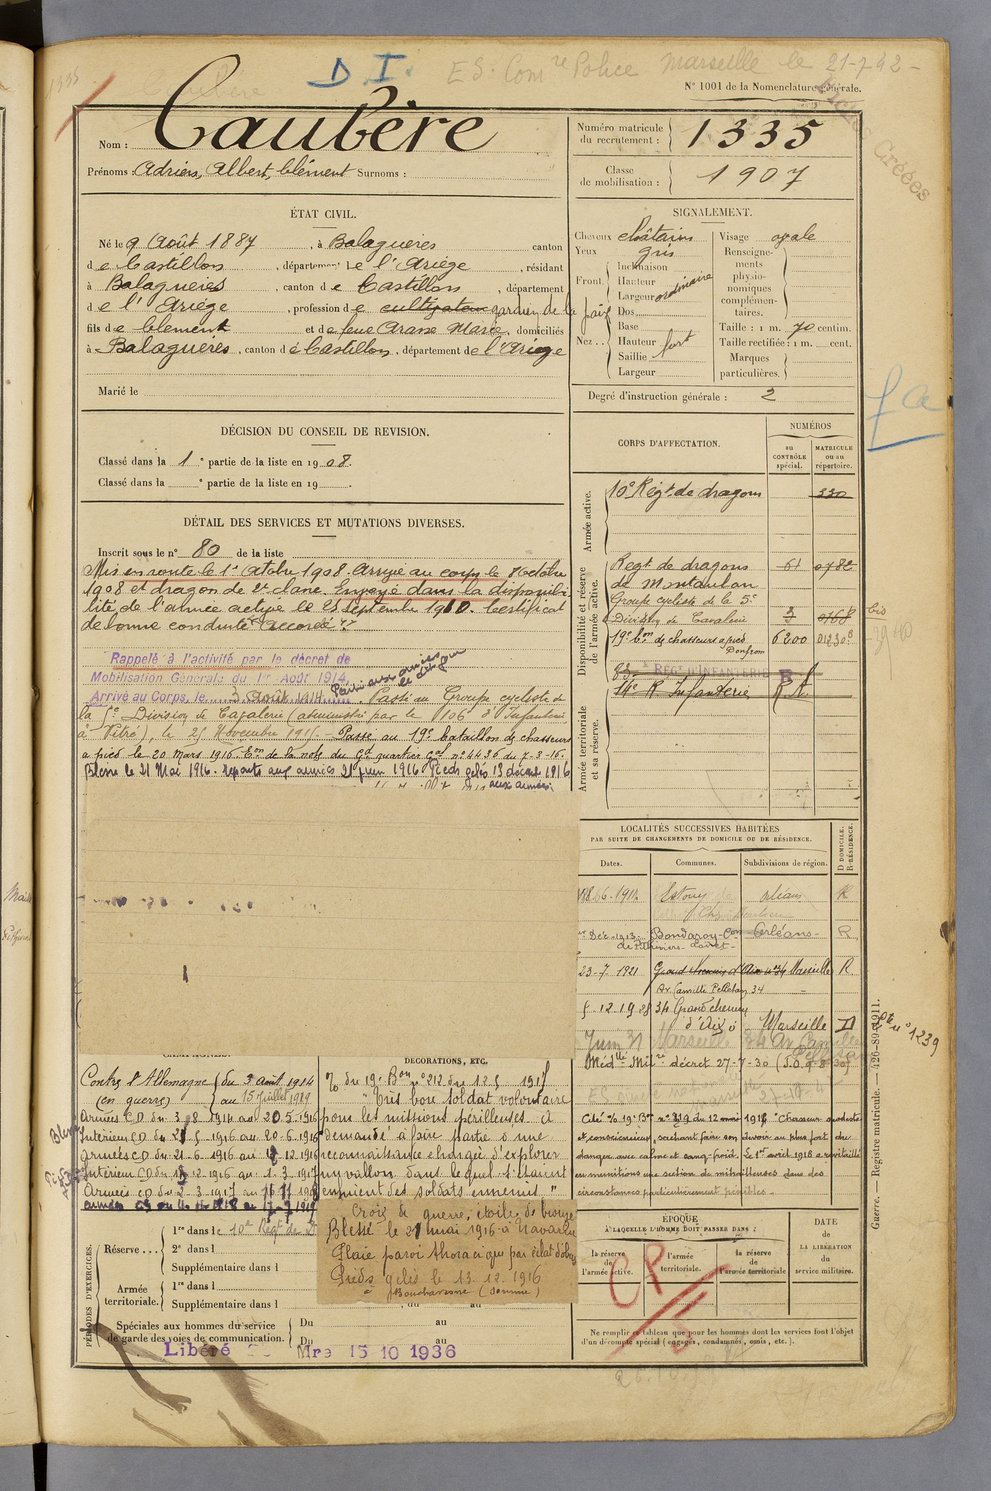 1335
D I.
ES. Com re Police Marseille le 21-7-42-
N° 1001 de la Nomenclature générale.
Nom : Caubère
Prénoms : Adrien, Albert, Clément Surnoms :
Numéro matricule du recrutement : 1335
Classe de mobilisation : 1907
ÉTAT CIVIL.
Né le 9 Août 1887, à Balaguères canton
de Castillon, département de l'Ariège, résidant
à Balaguères, canton de Castillon, département
de l'Ariège, profession de cultivateur gardien de la paix
fils de Clément et de feue Arasse Marie, domiciliés
à Balaguères, canton de Castillon, département de l'Ariège
Marié le
SIGNALEMENT.
Cheveux châtains
Yeux gris
Front Inclinaison
Hauteur
Largeur ordinaire
Nez Dos
Base
Hauteur fort
Saillie
Largeur
Visage ovale
Renseignements physionomiques complémentaires.
Taille : 1 m. 70 centim.
Taille rectifiée : 1 m. cent.
Marques particulières.
Degré d'instruction générale : 2
DÉCISION DU CONSEIL DE REVISION.
Classé dans la 1e partie de la liste en 1908.
Classé dans la e partie de la liste en 19 .
DÉTAIL DES SERVICES ET MUTATIONS DIVERSES.
Inscrit sous le n° 80 de la liste
Mis en route le 1er Octobre 1908. Arrivé au corps le 8 octobre
1908 et dragon de 2e classe. Envoyé dans la disponibi-
lité de l'armée active le 25 septembre 1910. Certificat
de bonne conduite accordé
Rappelé à l'activité par le décret de
Mobilisation Générale du 1er Août 1914,
Arrivé au Corps, le 3 Août 1914. Passé au Groupe cycliste de
la 5e Division de Cavalerie (administré par le 106 d'Infanterie
à Vitré), le 25 Novembre 1915. Passé au 19e bataillon de chasseurs
à pied le 20 Mars 1916. Eon de la note du Gd quartier Gal n° 4436 du 7-3-16.
Blessé le 21 Mai 1916. reparti aux armées 21 juin 1916 Pieds gelés 13 décembre 1916
aux armées
CORPS D'AFFECTATION.
NUMÉROS
au CONTRÔLE spécial.
MATRICULE ou au répertoire.
Armée active.
10e Régt de dragons 330
Disponibilité et réserve de l'armée active.
Régt de dragons 61 0782
de Montauban
Groupe cycliste de la 5e
Division de Cavalerie 0768
19e Bon de chasseurs à pied 6200
RÉGt D'INFANTERIE
14e R Infanterie
Armée territoriale et sa réserve.
LOCALITÉS SUCCESSIVES HABITÉES
PAR SUITE DE CHANGEMENTS DE DOMICILE OU DE RÉSIDENCE.
Dates.
Communes.
Subdivisions de région.
D DOMICILE. R RÉSIDENCE.
6-1914 Orléans R
Déc. 1913 Bondaroy Con Orléans R
de Pithiviers - Loiret -
23-7-1921 Grand chemin d'Aix n° 34 Marseille R
Av Camille Pelletan 34
5-12-1928 34 Grand chemin
d'Aix à Marseille D
Juin 31 Marseille 34 Av Camille
Pelletan
Médlle Milre décret 27-7-30 (J.O. 9-8-30)
Cité % 19e Bon n° 319 du 12 1918 "Chasseur modeste
et consciencieux, sachant faire son devoir au plus fort du
danger avec calme et sang-froid. Le 1er avril 1918 a ravitaillé
en munitions une section de mitrailleuses dans des
circonstances particulièrement pénibles -
CAMPAGNES.
Contre l'Allemagne du 3 août 1914
(en guerre) au 15 juillet 1919
Armées CD du 3 8 1914 au 20 5-1916
Intérieur CD du 21 5 1916 au 20-6-1916
Armées CD du 21-6 1916 au 12 1916
Intérieur CD du 12 1916 au 1-3 1917
Armées CD du 2-3 1917 au 11 1918
DÉCORATIONS, ETC.
% du 19e Bon n° 212 du 12 5 1917
"Très bon soldat volontaire
pour les missions périlleuses. A
demandé à faire partie d'une
reconnaissance chargée d'explorer
un vallon dans lequel s'étaient
des soldats ennemis"
Croix de guerre, étoile de bronze
Blessé le 21 mai 1916 à Navarin
Plaie paroi thoracique par éclat d'obus
Pieds gelés le 13.12.1916
à Bouchavesne (Somme)
PÉRIODES D'EXERCICES.
Réserve 1re dans le 10e Régt de D
2e dans l
Supplémentaire dans l
Armée territoriale. 1re dans l
Supplémentaire dans l du au
Spéciales aux hommes du service de garde des voies de communication. Du au
Du au
Libéré Mre 15 10 1936
ÉPOQUE
À LAQUELLE L'HOMME DOIT PASSER DANS :
la réserve de l'armée active.
l'armée territoriale.
la réserve de l'armée territoriale
DATE DE LA LIBÉRATION du service militaire.
CP
Ne remplir ce tableau que pour les hommes dont les services font l'objet
d'un décompte spécial (engagés, condamnés, omis, etc.).
Guerre. — Registre matricule. — 426-89-1911.
n° 1239